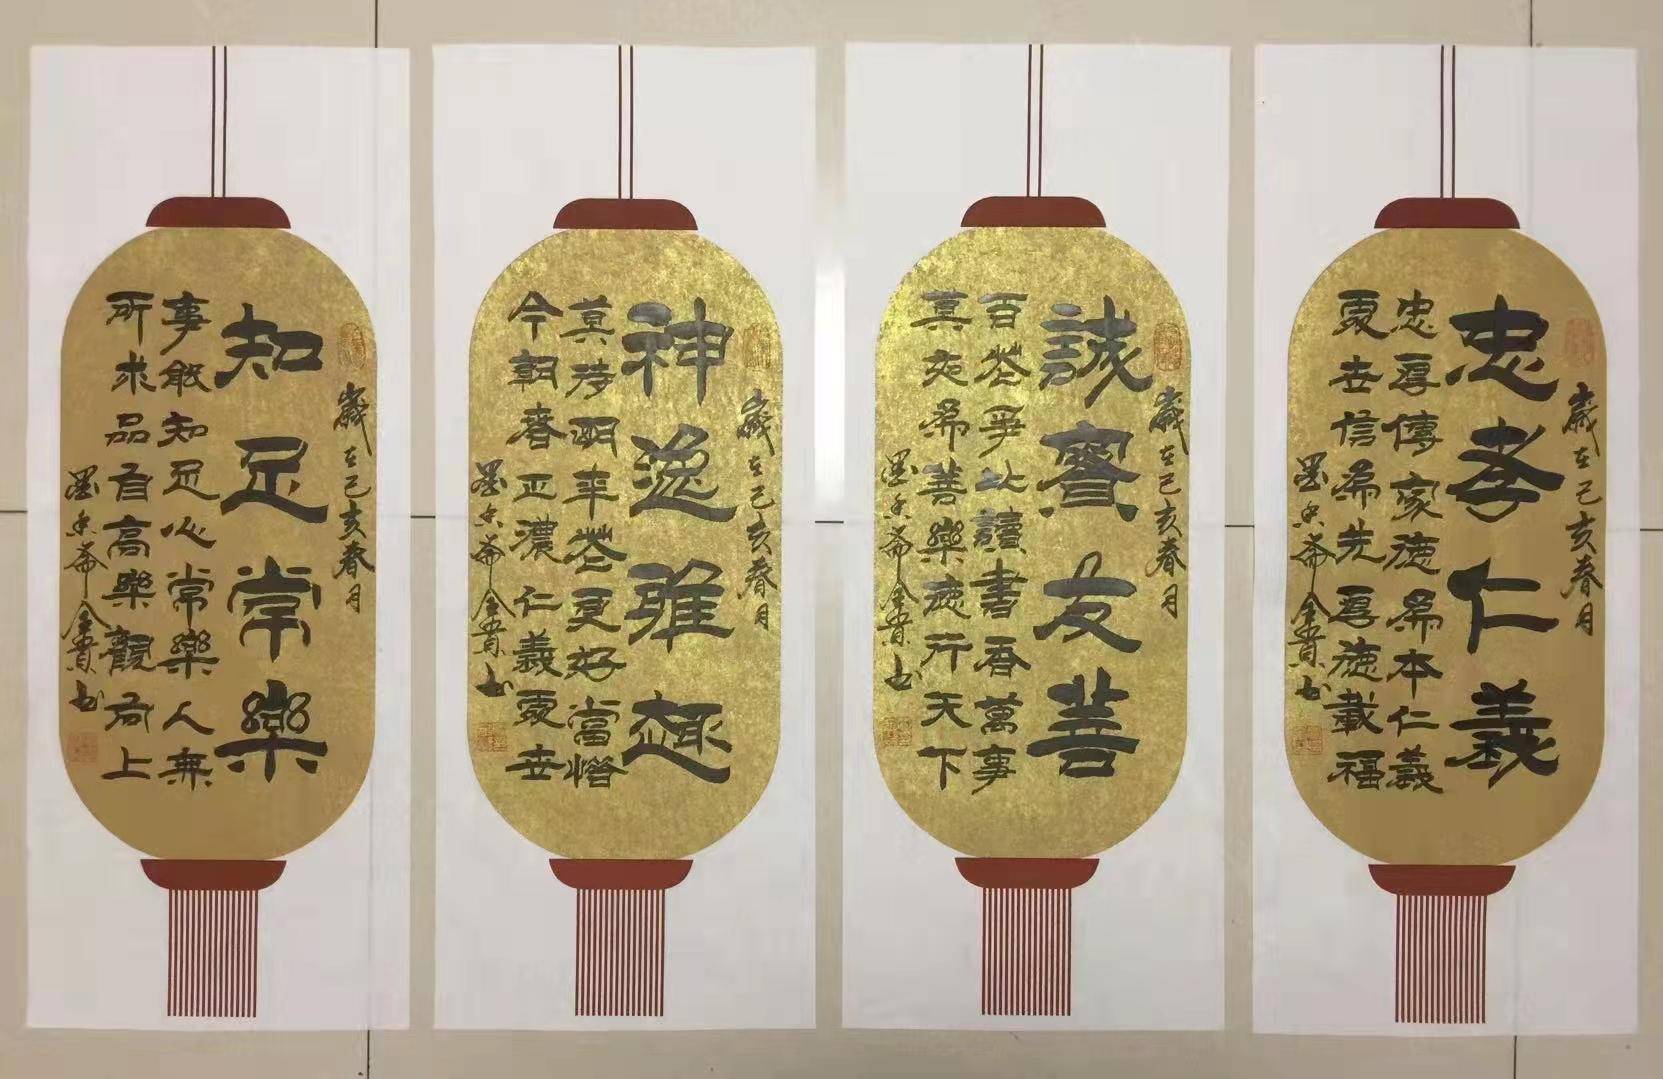 歲在己亥春月
忠孝仁義
忠厚傳家德為本仁義
處世信為先厚德載福
墨香齋金貴书
歲在己亥春月
誠實友善
百花爭比讀書香萬事
莫如為善樂德行天下
墨香齋金貴书
歲在己亥春月
神逸雅趣
莫待明年花更好當惜
今朝春正濃仁義處世
墨香齋金貴书
歲在己亥春月
知足常樂
事能知足心常樂人無
所求品自高樂觀向上
墨香齋金貴书